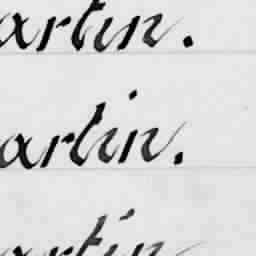 artin.
artin.
artin